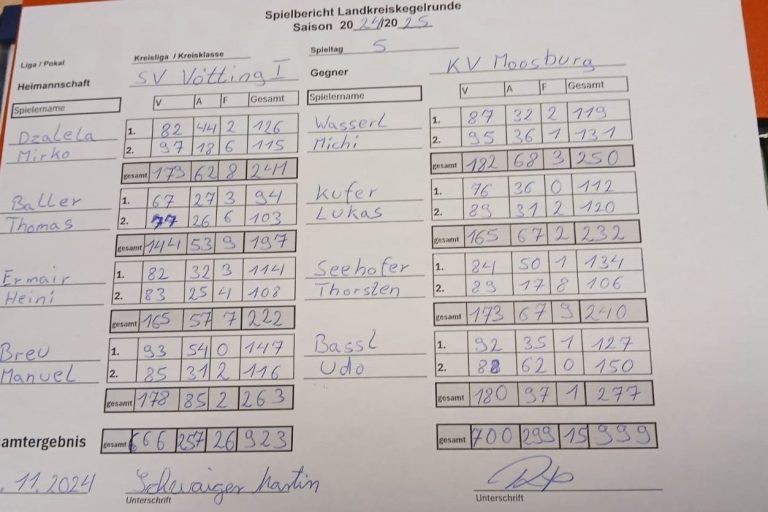 Spielbericht Landkreiskegelrunde
Saison 2024/2025
Liga / Pokal Kreisliga / Kreisklasse Spieltag 5
Heimannschaft SV Vötting I Gegner KV Moosburg
Spielername V A F Gesamt Spielername V A F Gesamt
Dzalela 1. 82 44 2 126 Wasserl 1. 87 32 2 119
Mirko 2. 97 18 6 115 Michi 2. 95 36 1 131
gesamt 173 62 8 241 gesamt 182 68 3 250
Baller 1. 67 27 3 94 Kufer 1. 76 36 0 112
Thomas 2. 77 26 6 103 Lukas 2. 89 31 2 120
gesamt 144 53 9 197 gesamt 165 67 2 232
Ermair 1. 82 32 3 114 Seehofer 1. 84 50 1 134
Heini 2. 83 25 4 108 Thorsten 2. 89 17 8 106
gesamt 165 57 7 222 gesamt 173 67 9 240
Breu 1. 93 54 0 147 Bassl 1. 92 35 1 127
Manuel 2. 85 31 2 116 Udo 2. 88 62 0 150
gesamt 178 85 2 263 gesamt 180 97 1 277
amtergebnis gesamt 666 257 26 923 gesamt 700 299 15 999
.11.2024 Schwaiger Martin
Unterschrift Unterschrift